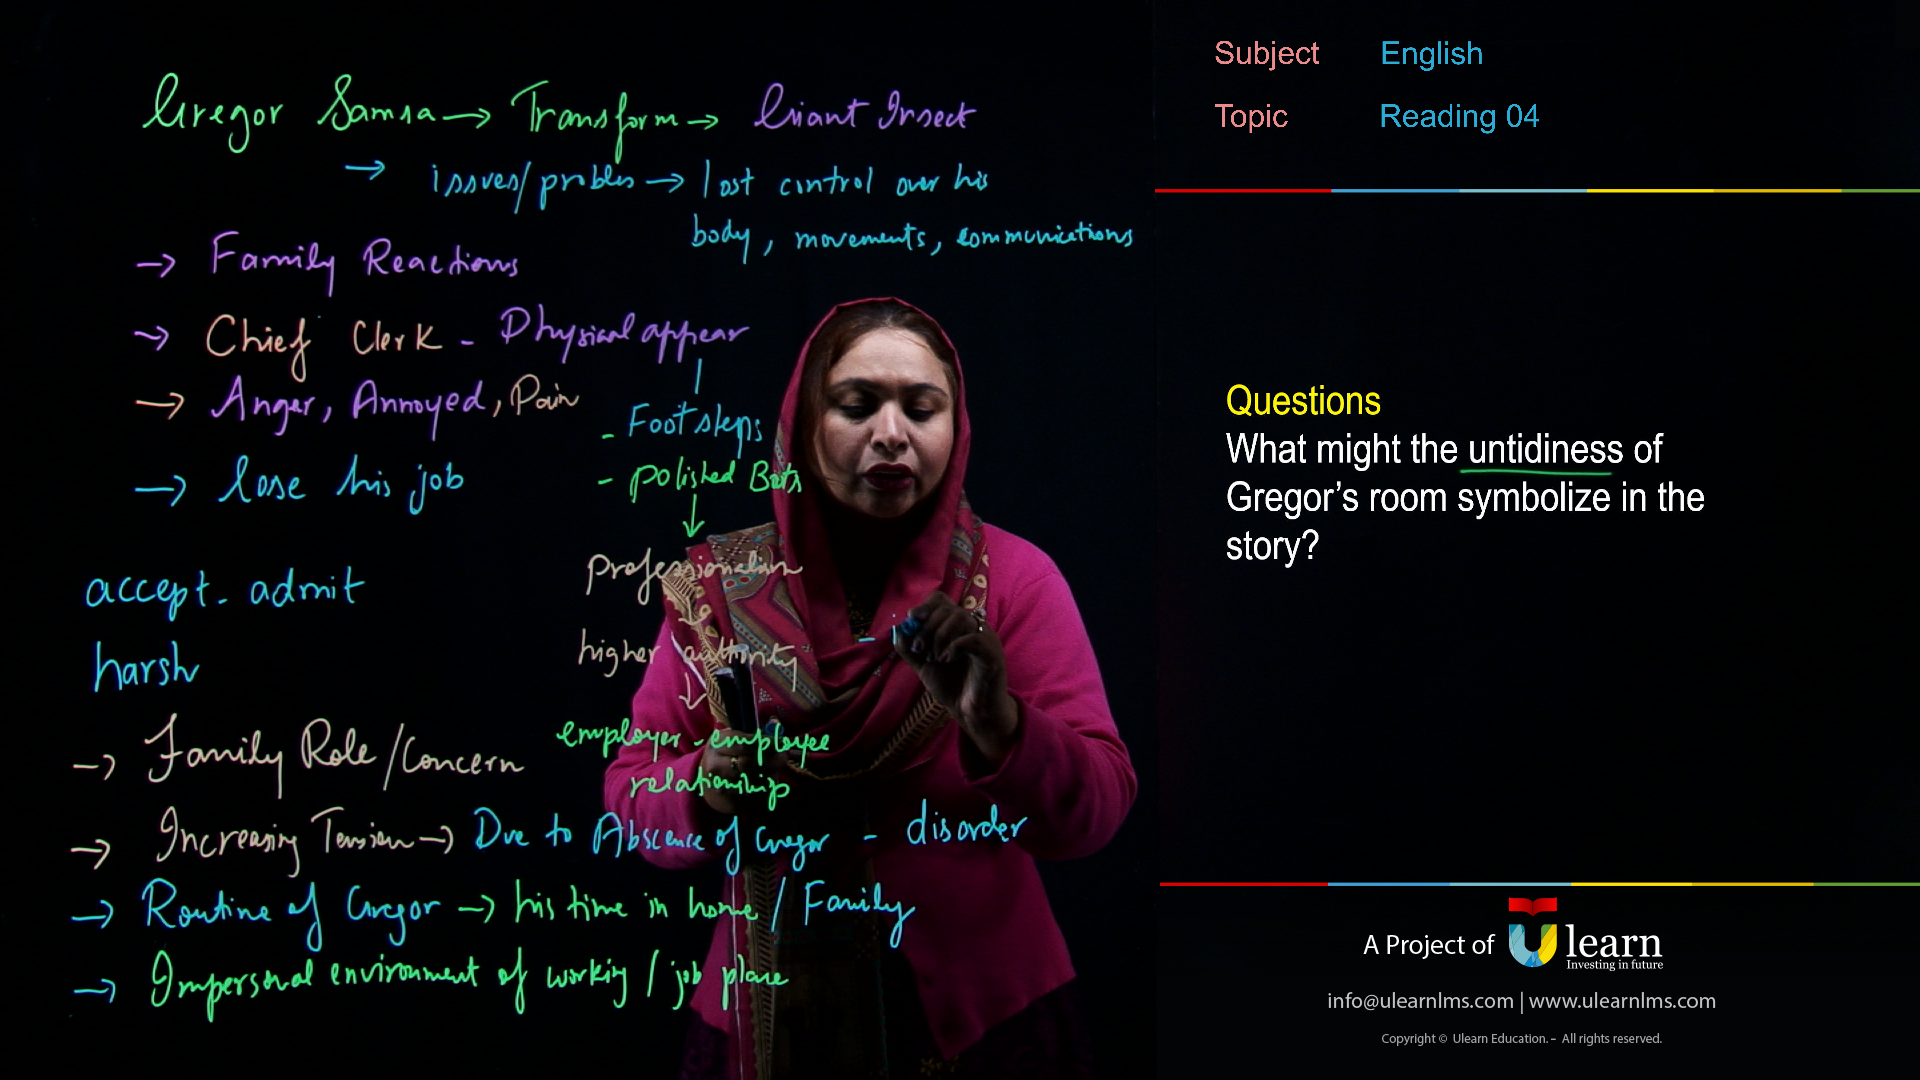 Gregor Samsa → Transform → Giant Insect
→ issues/probles → lost control over his
body, movements, communications
→ Family Reactions
→ Chief Clerk - Physical appear
→ Anger, Annoyed, Pain
- Foot steps
- polished Boots
→ lose his job
professionalism
accept - admit
higher authority
harsh
employer - employee
relationship
→ Family Role/Concern
→ Increasing Tension → Due to Absence of Gregor - disorder
→ Routine of Gregor → his time in home / Family
→ Impersonal environment of working / job place
Subject English
Topic Reading 04
Questions
What might the untidiness of
Gregor's room symbolize in the
story?
A Project of Ulearn
Investing in future
info@ulearnlms.com | www.ulearnlms.com
Copyright © Ulearn Education. – All rights reserved.